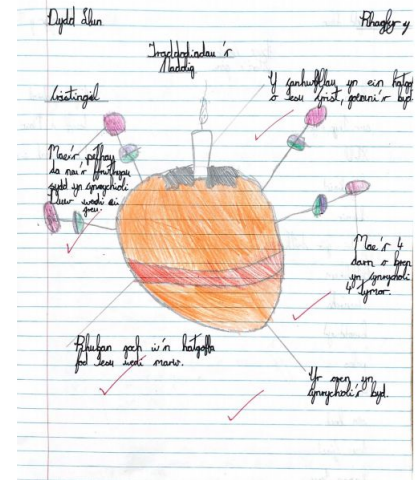 Dydd Llun
Rhagfyr y
Traddodiadau'r
Nadolig
Cristingl
Y ganhwyllau yn ein hatgof
o Iesu Grist, goleuni'r byd.
Mae'r pethau
da na'r ffrwythau
sydd yn cynrychioli
Duw wedi ei
greu.
Mae'r 4
darn o bren
yn cynrychioli
4 tymor.
Rhuban goch i'n hatgoffa
fod Iesu wedi marw.
Yr oren yn
cynrychioli'r byd.